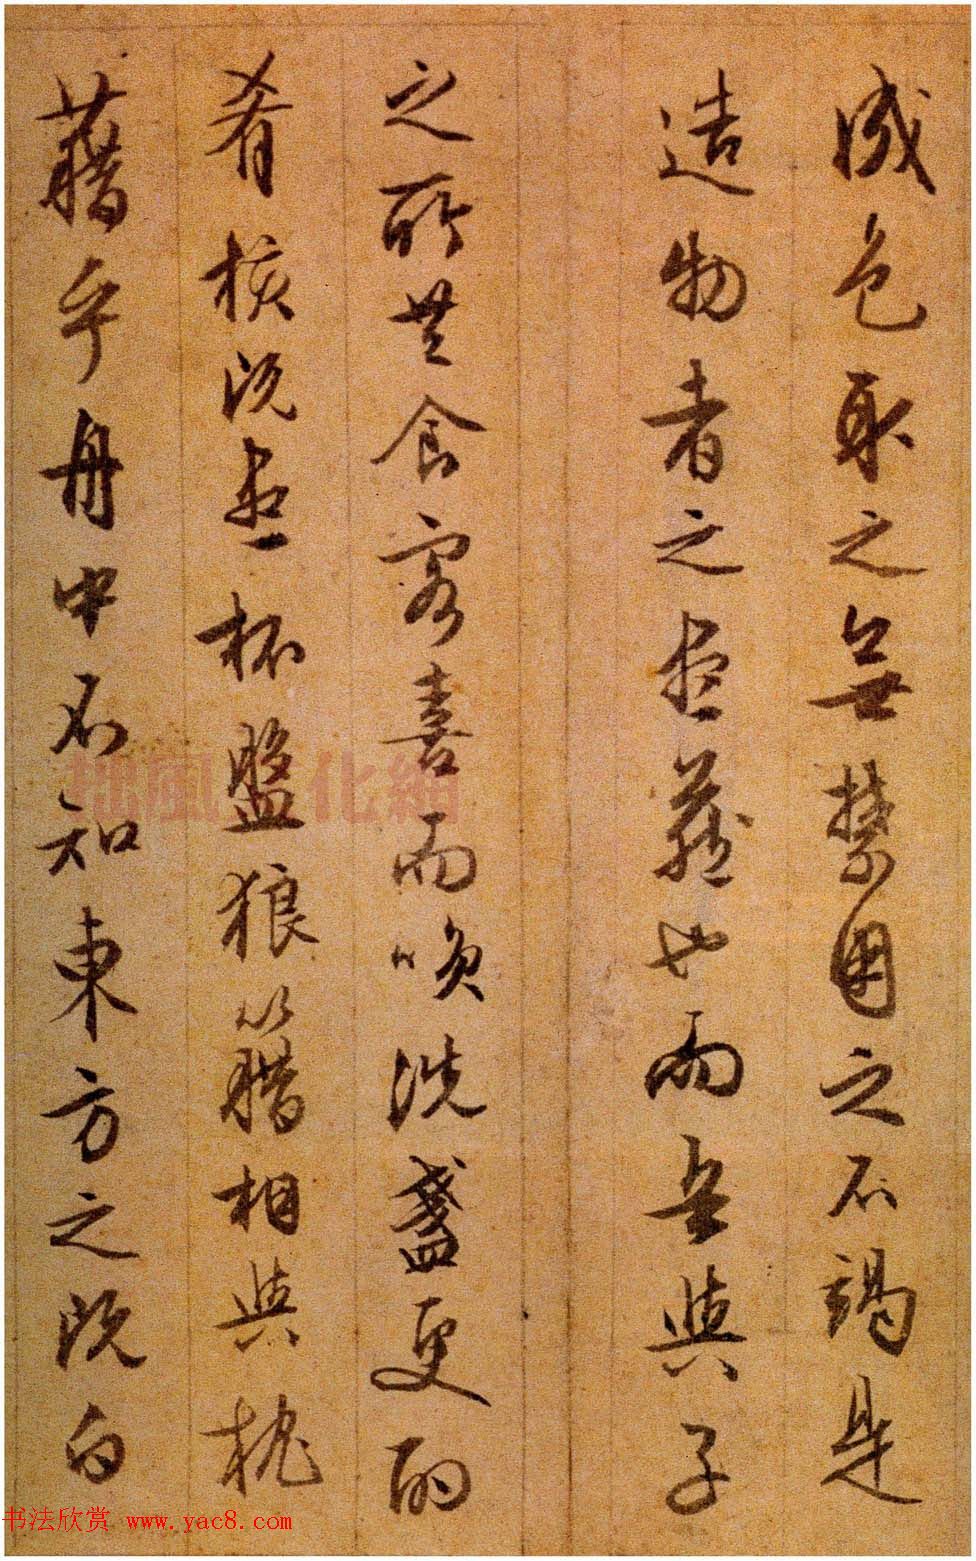 成色取之無禁用之不竭是
造物者之盡藏也而吾與子
之所共食客喜而咲洗盞更酌
肴核既盡杯盤狼籍相與枕
藉乎舟中不知東方之既白
拙風 化網
书法欣赏 www.yac8.com